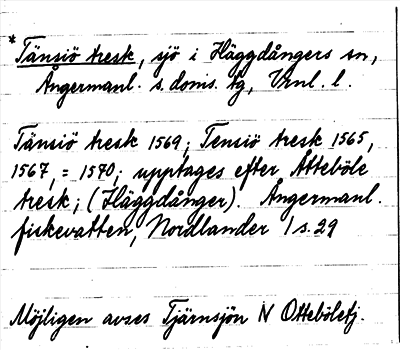 * Tänsiö tresk, sjö i Häggdångers sn,
Ångermanl. s. doms. tg, Vrnl. l.
Tänsiö tresk 1569; Tensiö tresk 1565,
1567, = 1570; upptages efter Åtteböle
tresk; (Häggdånger). Ångermanl.
fiskevatten, Nordlander 1 s. 29
Möjligen avses Tjärnsjön N Otteböletj.